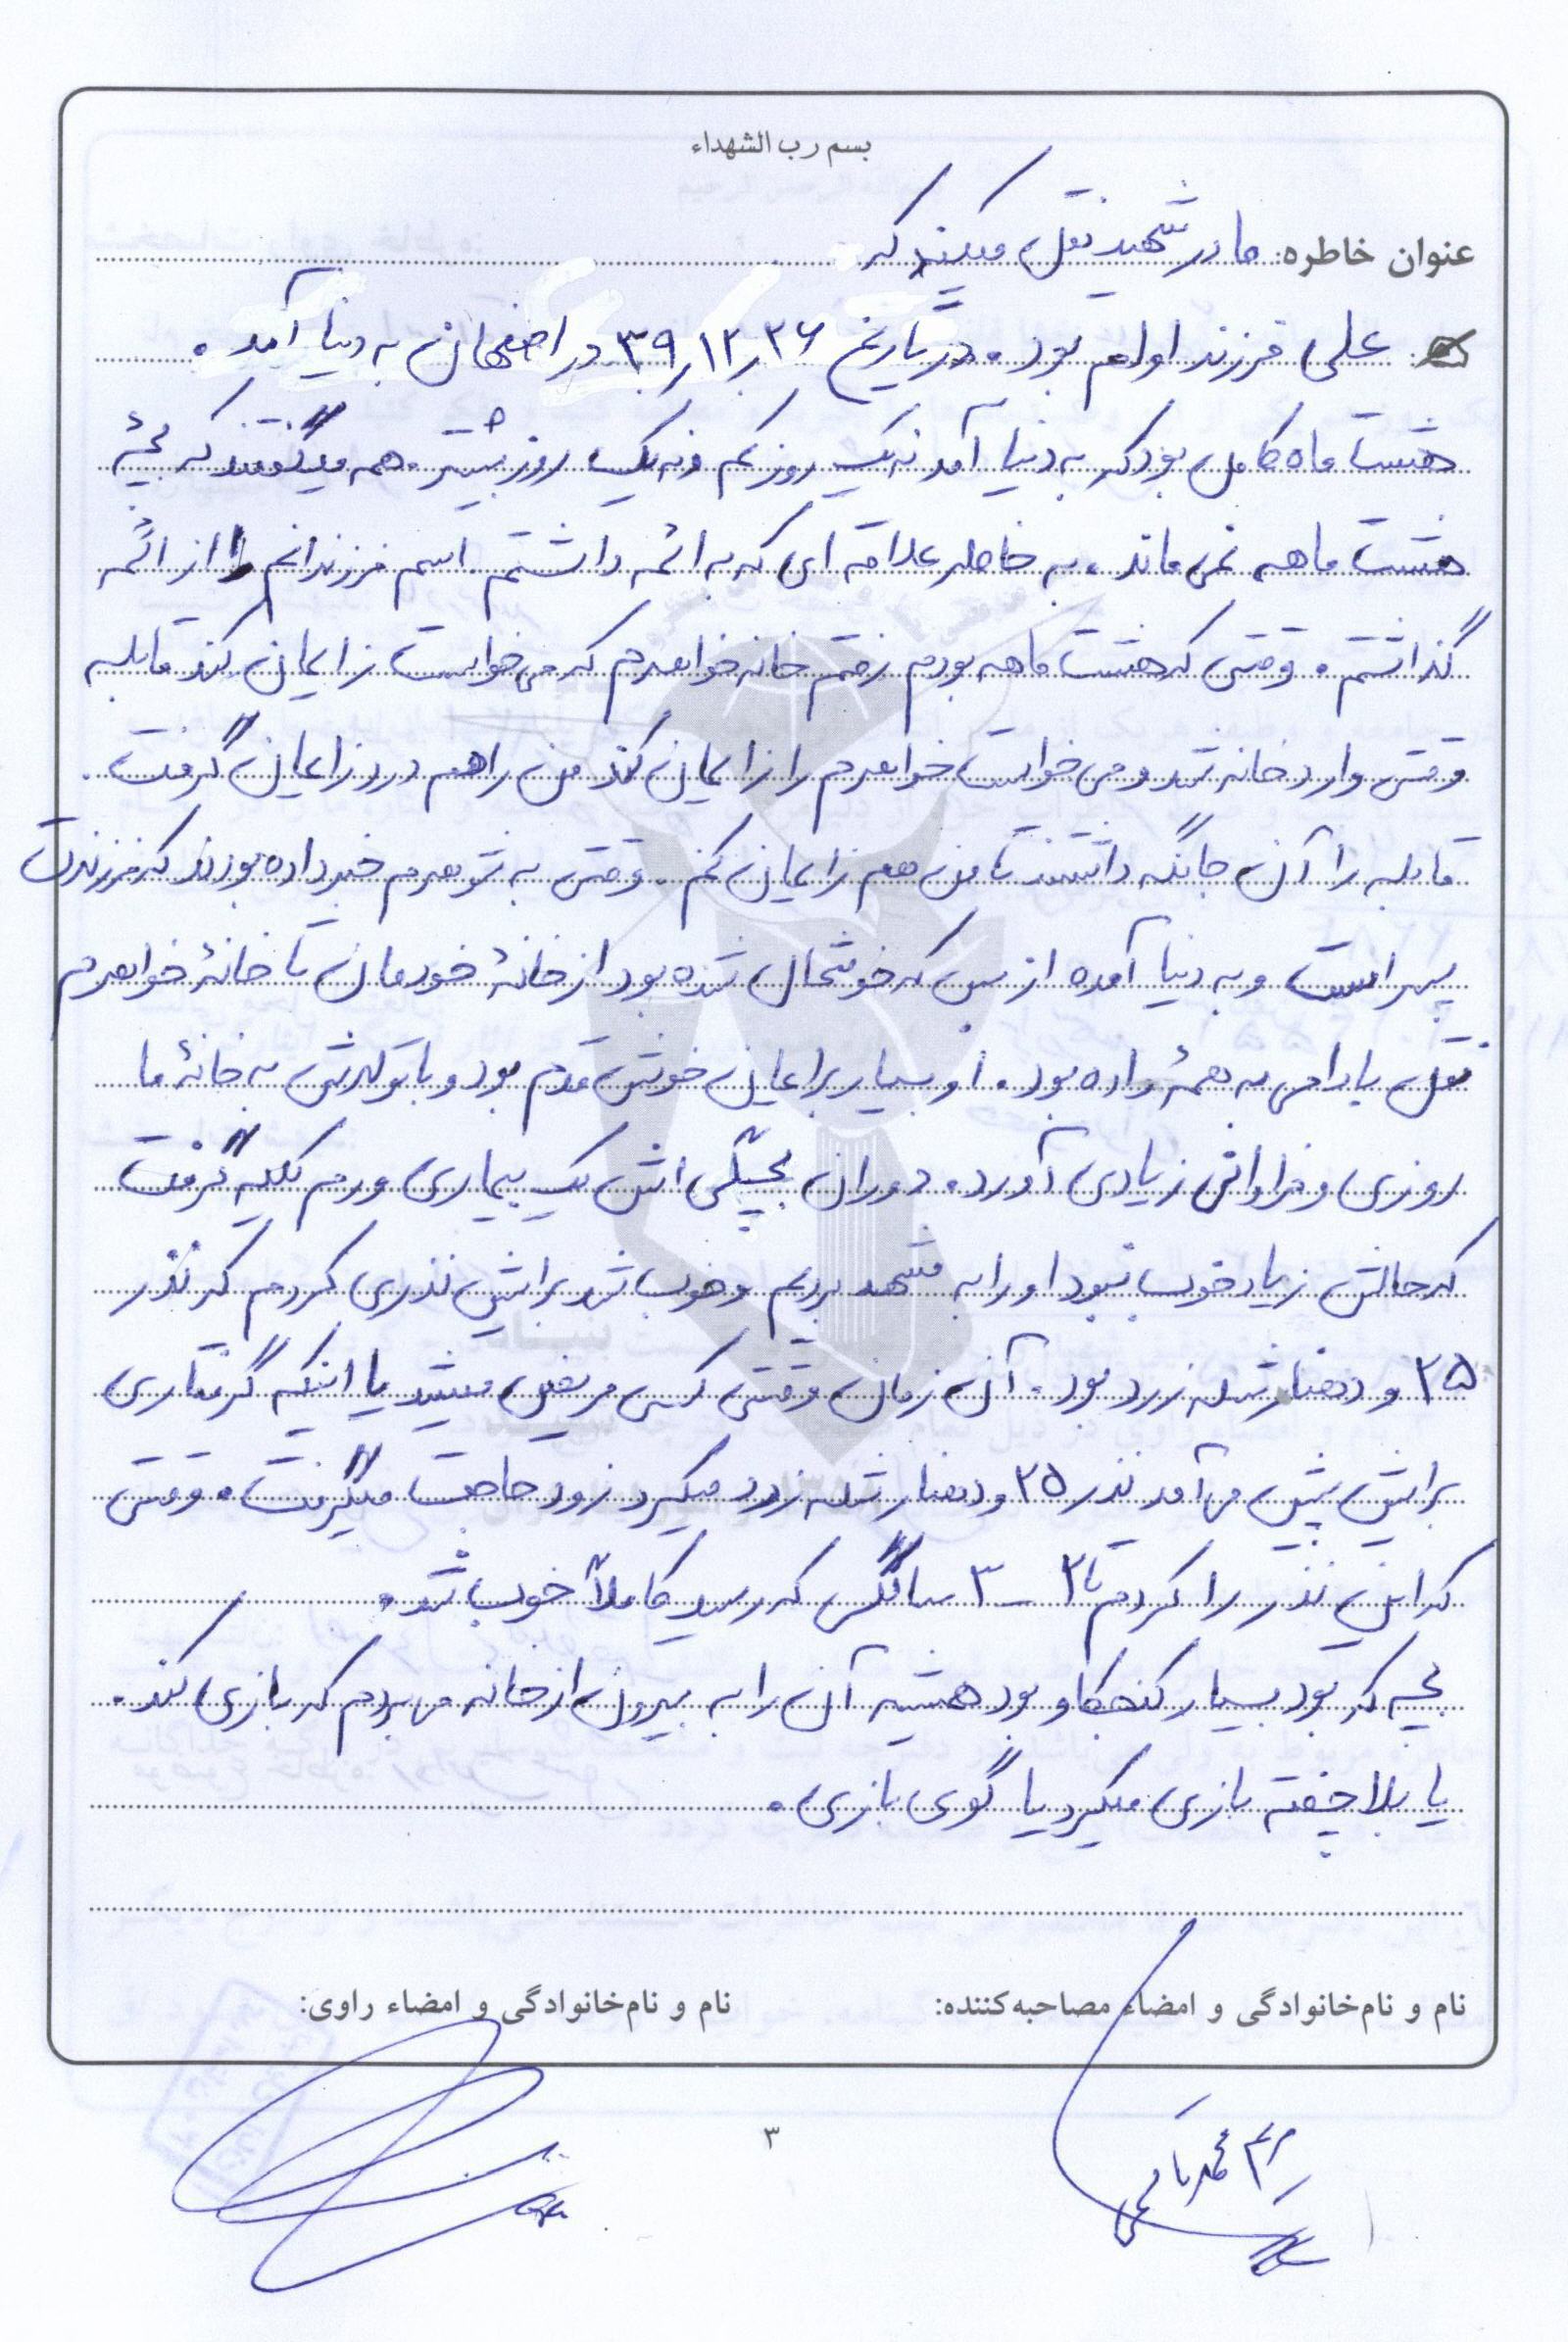 بسم رب الشهداء
عنوان خاطره: مادر شهید نقل میکند که
علی فرزند اولم بود. در تاریخ ۳۹٫۱۲٫۲۶ در اصفهان به دنیا آمد.
هشت ماه کامل بود که به دنیا آمد نه یک روز کم و نه یک روز بیشتر. همه میگفتند که بچهٔ
هشت ماهه نمی ماند. به خاطر علاقه ای که به ائمه داشتم اسم فرزندانم را از ائمه
گذاشتم. وقتی که هشت ماهه بودم رفتم خانه خواهرم که می خواست زایمان کند قابله
وقتی وارد خانه شد و می خواست خواهرم را زایمان کند من را هم درد زایمان گرفت.
قابله را آن جا نگه داشتند تا من هم زایمان کنم. وقتی به شوهرم خبر داده بودند که فرزندت
پسر است و به دنیا آمده از بس که خوشحال شده بود از خانهٔ خودمان تا خانهٔ خواهرم
نقل بادامی به همه داده بود. او بسیار برایمان خوش قدم بود و با تولدش به خانهٔ ما
روزی و فراوانی زیادی آورد. دوران بچگی اش یک بیماری ورم کلیه گرفت
که حالش زیاد خوب نبود او را به مشهد بردیم و خوب شد برایش نذری کردم که نذر
۲۵ و دهنار شله زرد بود. آن زمان وقتی کسی مریض میشد یا اینکه گرفتاری
برایش پیش می آمد نذر ۲۵ و دهنار شله زرد میکرد زود حاجت میگرفت. وقتی
که این نذر را کردم تا ۲ - ۳ سالگی که رسید کاملاً خوب شد.
بچه که بود بسیار کنجکاو بود همیشه آن را به بیرون از خانه می بردم که بازی کند.
یا بلا چفته بازی میکرد یا گوی بازی.
نام و نام‌خانوادگی و امضاء مصاحبه‌کننده:
نام و نام‌خانوادگی و امضاء راوی:
مریم محمد
۳